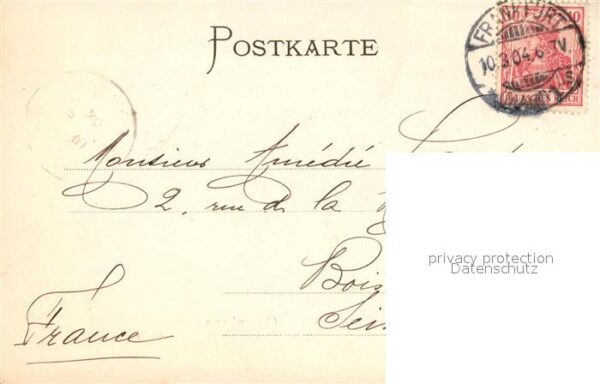 POSTKARTE
FRANKFURT
10.3.04.6
REICH
Monsieur Amédée
2, rue de la
Bois
Sei
France
privacy protection
Datenschutz